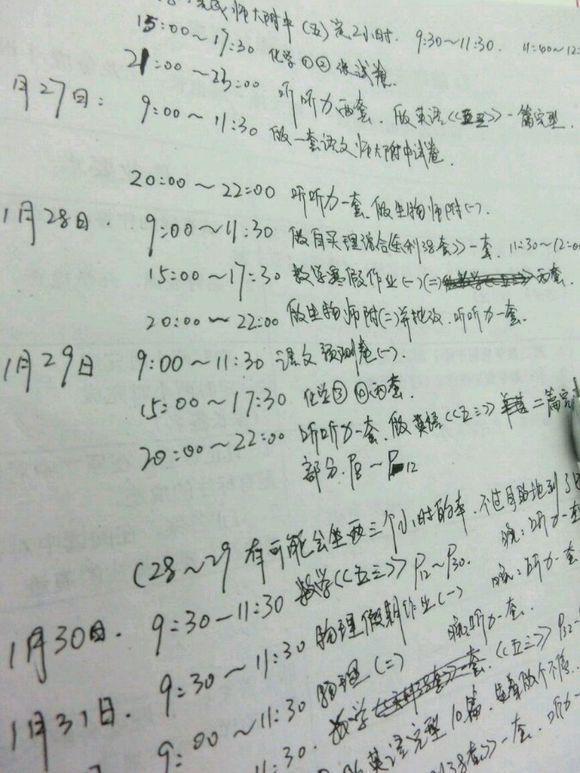 师大附中(五)完2小时. 9:30~11:30. 11:00~12:
15:00~17:30 化学①②张试卷.
21:00~23:00 听听力两套. 做英语《五三》一篇完型.
1月27日: 9:00~11:30 做一套语文师大附中试卷.
20:00~22:00 听听力一套、做生物师附(一).
1月28日. 9:00~11:30 做自买理综合 38套》一套. 11:30~12:00
15:00~17:30 数学寒假作业(一)(二) 两套.
20:00~22:00 做生物师附(二)并批改. 听听力一套.
1月29日 9:00~11:30 语文预测卷(一).
15:00~17:30 化学③④两套.
20:00~22:00 听听力一套、做英语《五三》 二篇完
部分. P8~P12
(28~29 有可能会坐两三个小时的车. 不过目的地到
1月30日. 9:30-11:30 数学《五三》P12~P30. 晚:听力一套
9:30~11:30 物理假期作业(一) 晚:听力一套
1月31日. 9:00~11:30 物理(二) 晚听力一套.
11:30. 数学 一套. 《五三》P32-
英语完型10篇.
38套》一套. 听力